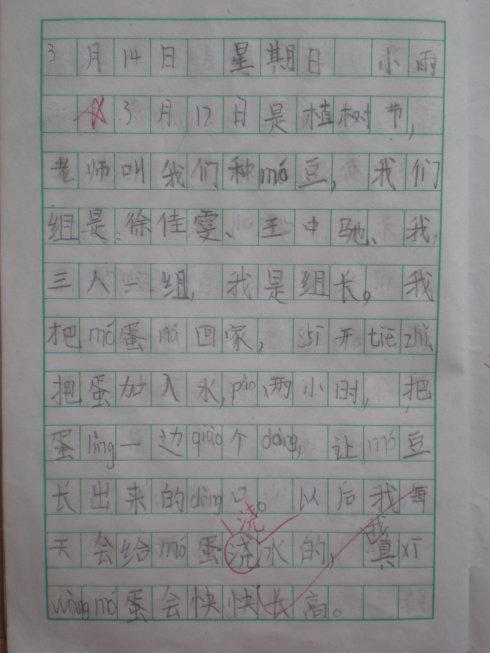 3月14日 星期日 小雨
3月12日是植树节,
老师叫我们种mó豆,我们
组是徐佳雯、王中驰、我,
三人一组,我是组长。我
把mó蛋ná回家,sī开tiē zhǐ,
把蛋放入水,pào两小时,把
蛋lìng一边qiāo个dòng,让mó豆
长出来的dòng口。以后我每
浇
我
天会给mó蛋浇水的,真xī
wàng mó蛋会快快长高。